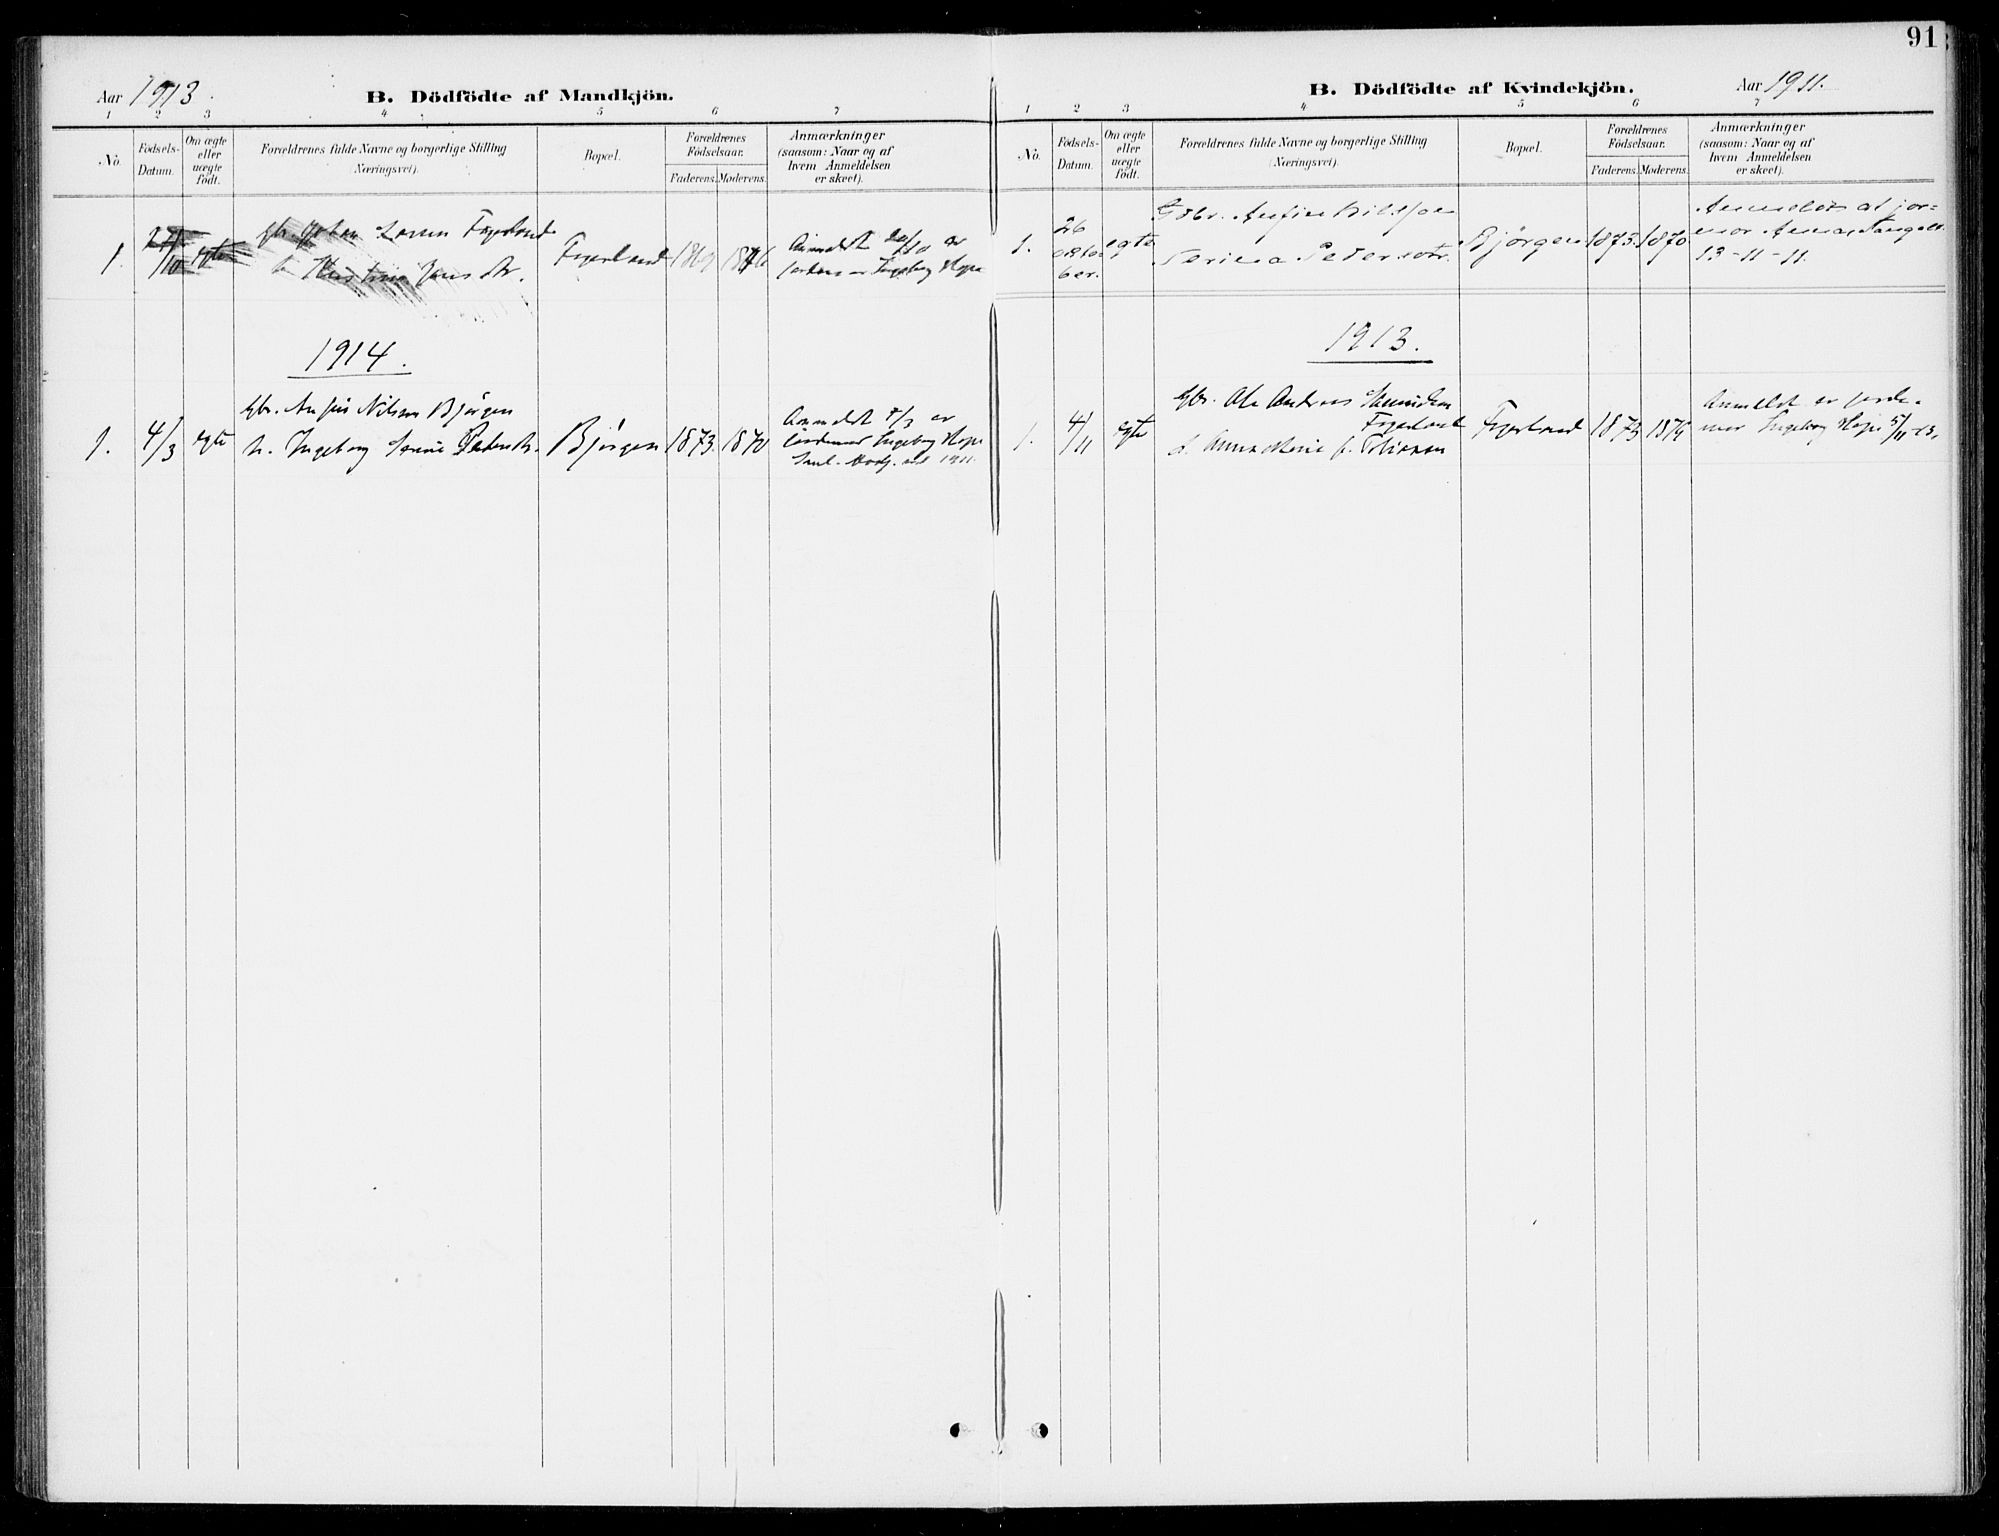 91
Aar 1913.
B. Dödfödte af Mandkjön.
1 2 3 4 5 6 7
No.
Fødsels-
Datum.
Om ægte
eller
uægte
født.
Forældrenes fulde Navne og borgerlige Stilling
(Næringsvei).
Bopæl.
Forældrenes
Fødselsaar.
Faderens. Moderens.
Anmærkninger
(saasom: Naar og af
hvem Anmeldelsen
er skeet).
1.
27/10
egte
gbr. Johan Fagerland
Jensdtr.
Fagerland
1869
Anmeldt 20/10 av
jordmor Ingeborg Hope
1914.
1.
4/3
egte
Gbr. Anfin Nilsen Bjørgen
h. Ingeborg Serine Pedersdtr.
Bjørgen
1873.
1870
Anmeldt 8/3 av
jordmor Ingeborg Hope
1911.
B. Dödfödte af Kvindekjön.
Aar 1911.
1 2 3 4 5 6 7
No.
Fødsels-
Datum.
Om ægte
eller
uægte
født.
Forældrenes fulde Navne og borgerlige Stilling
(Næringsvei).
Bopæl.
Forældrenes
Fødselsaar.
Faderens. Moderens.
Anmærkninger
(saasom: Naar og af
hvem Anmeldelsen
er skeet).
1.
26
okto-
ber.
egte
Gbr. Anfin Nilssen
Serina Pedersdtr.
Bjørgen
1873.
1870
Anmeldt af jor=
mor Anna
13-11-11.
1913.
1.
4/11
egte
Gbr. Ole Andreas
Fagerland
Anna
Fagerland
1873
1874
Anmeldt av jorde-
mor Ingeborg Hope 5/11-13.